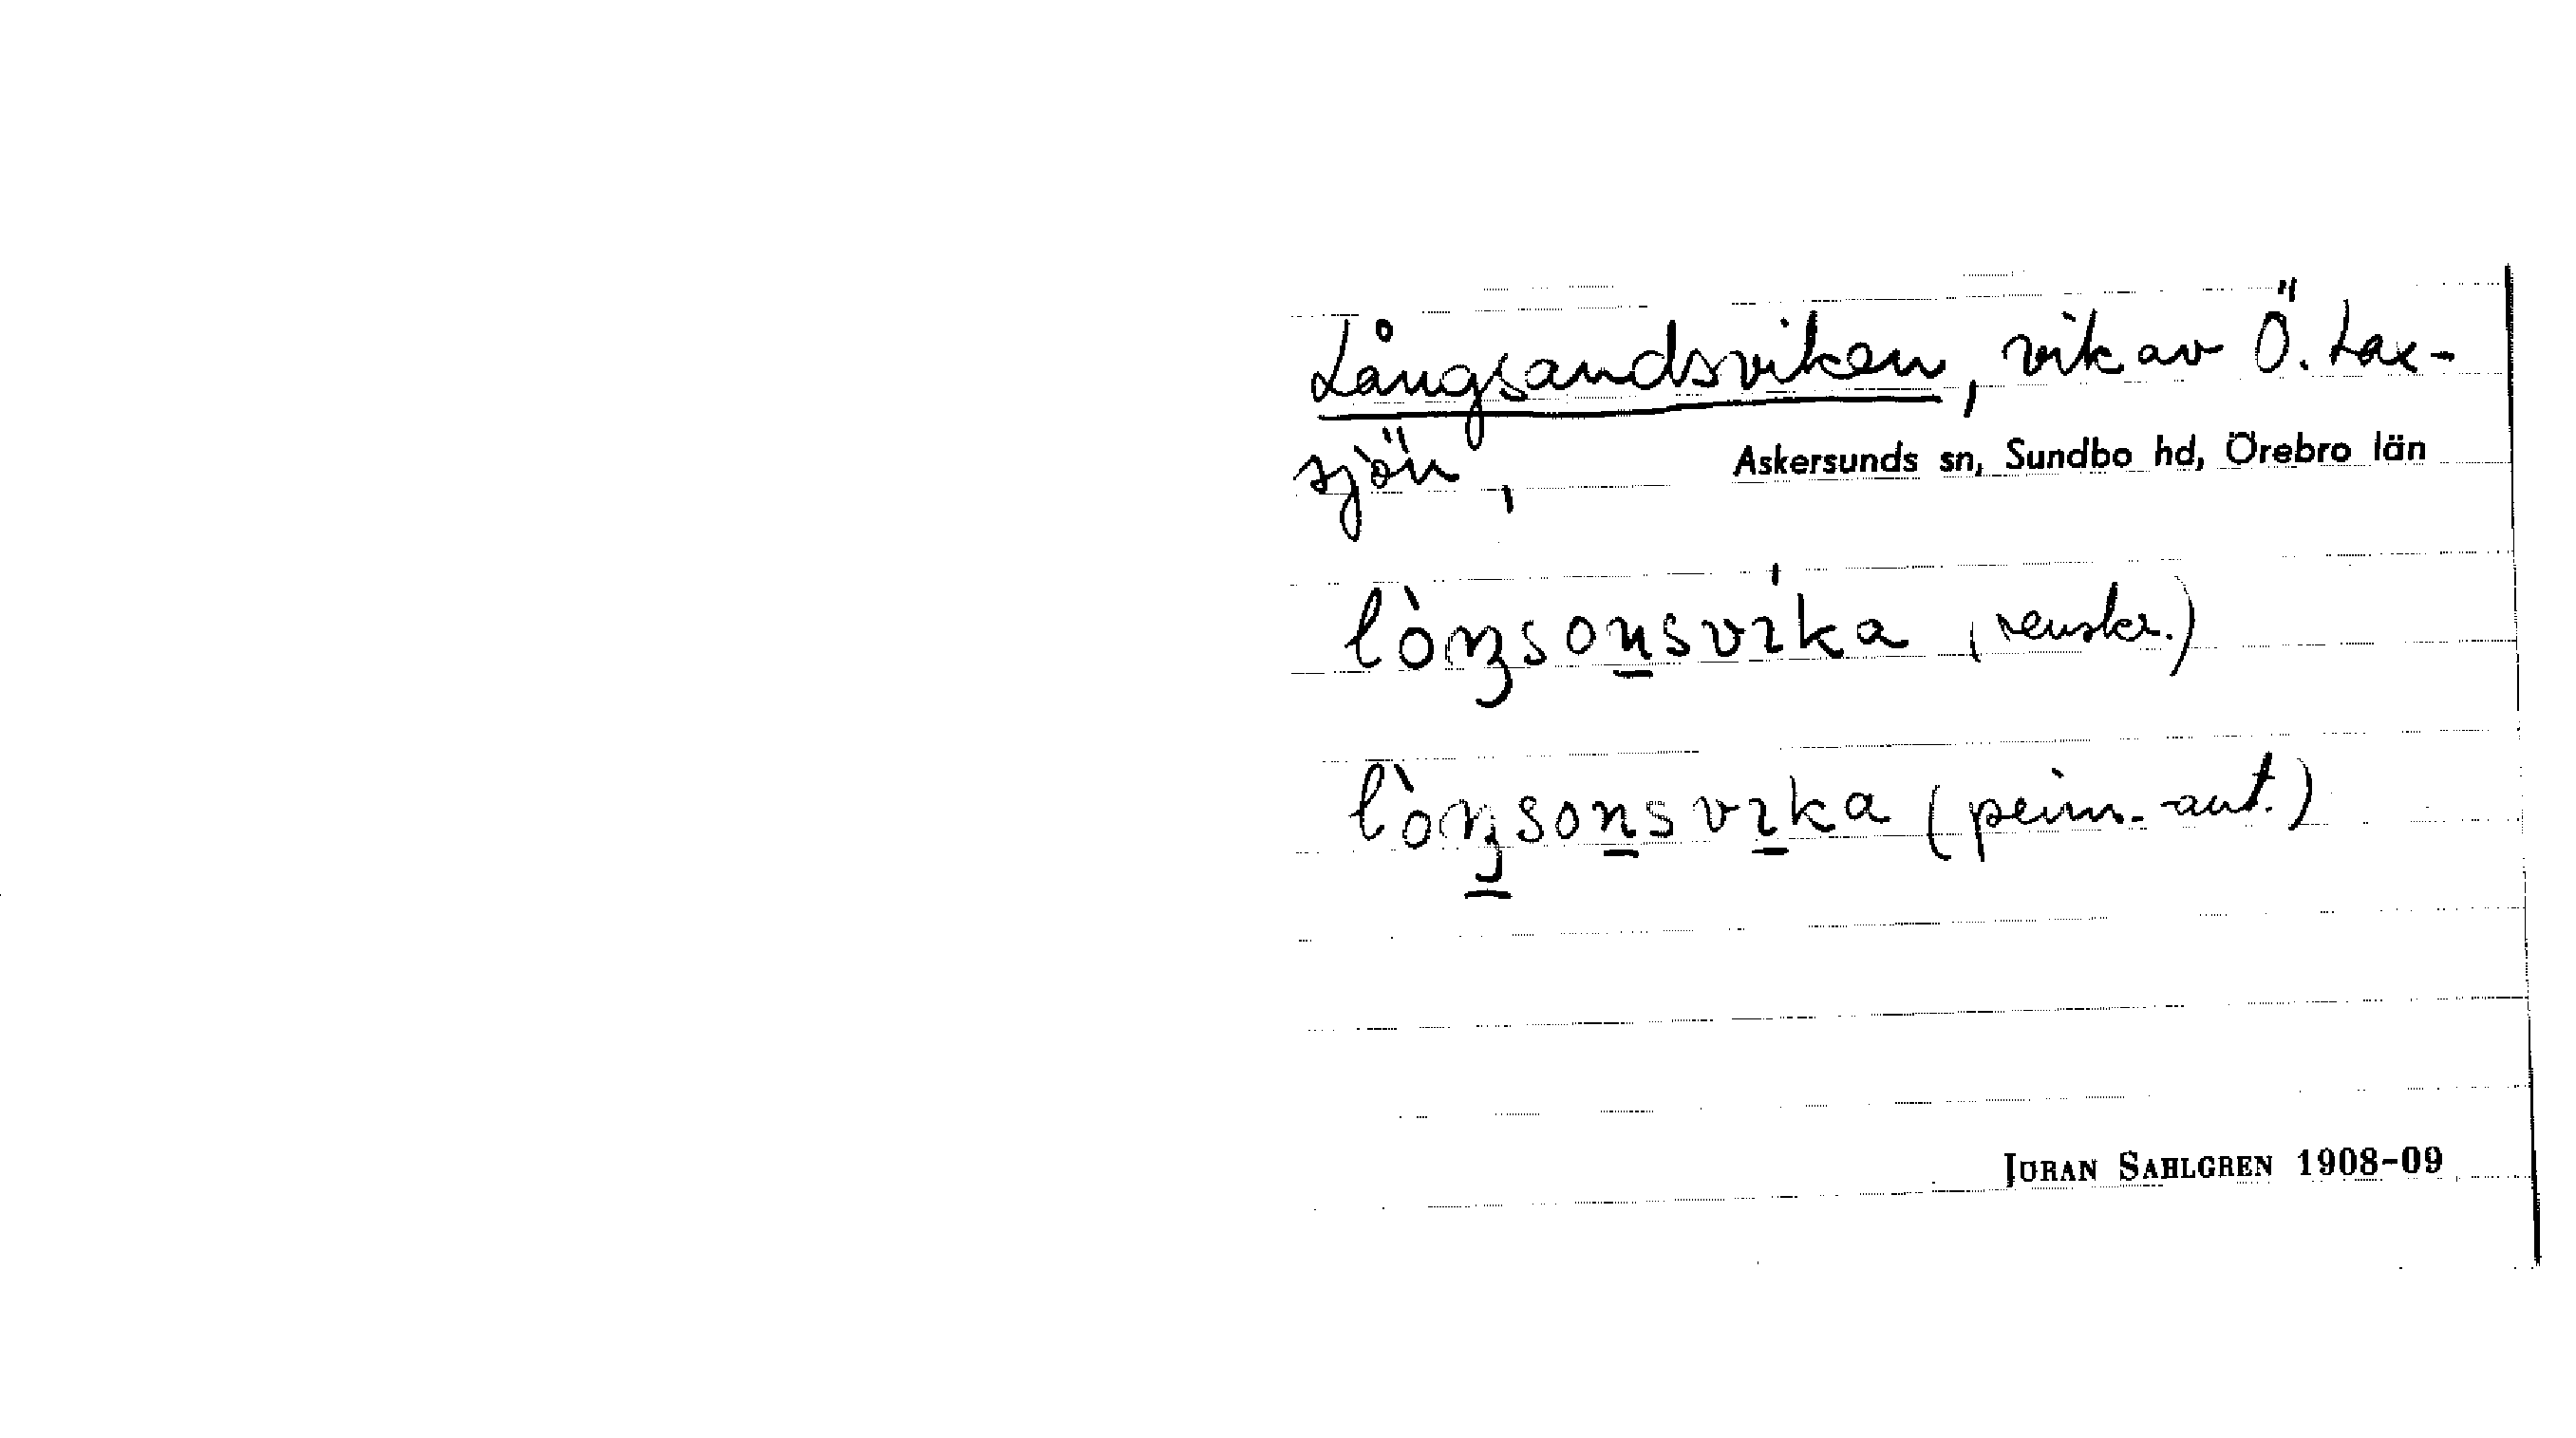 Långsandsviken, vik av Ö. Lax-
sjön,
Askersunds sn, Sundbo hd, Örebro län
lòŋsonsvika (renskr.)
lòŋsonsvika (prim.-ant.)
JÖRAN SAHLGREN 1908-09